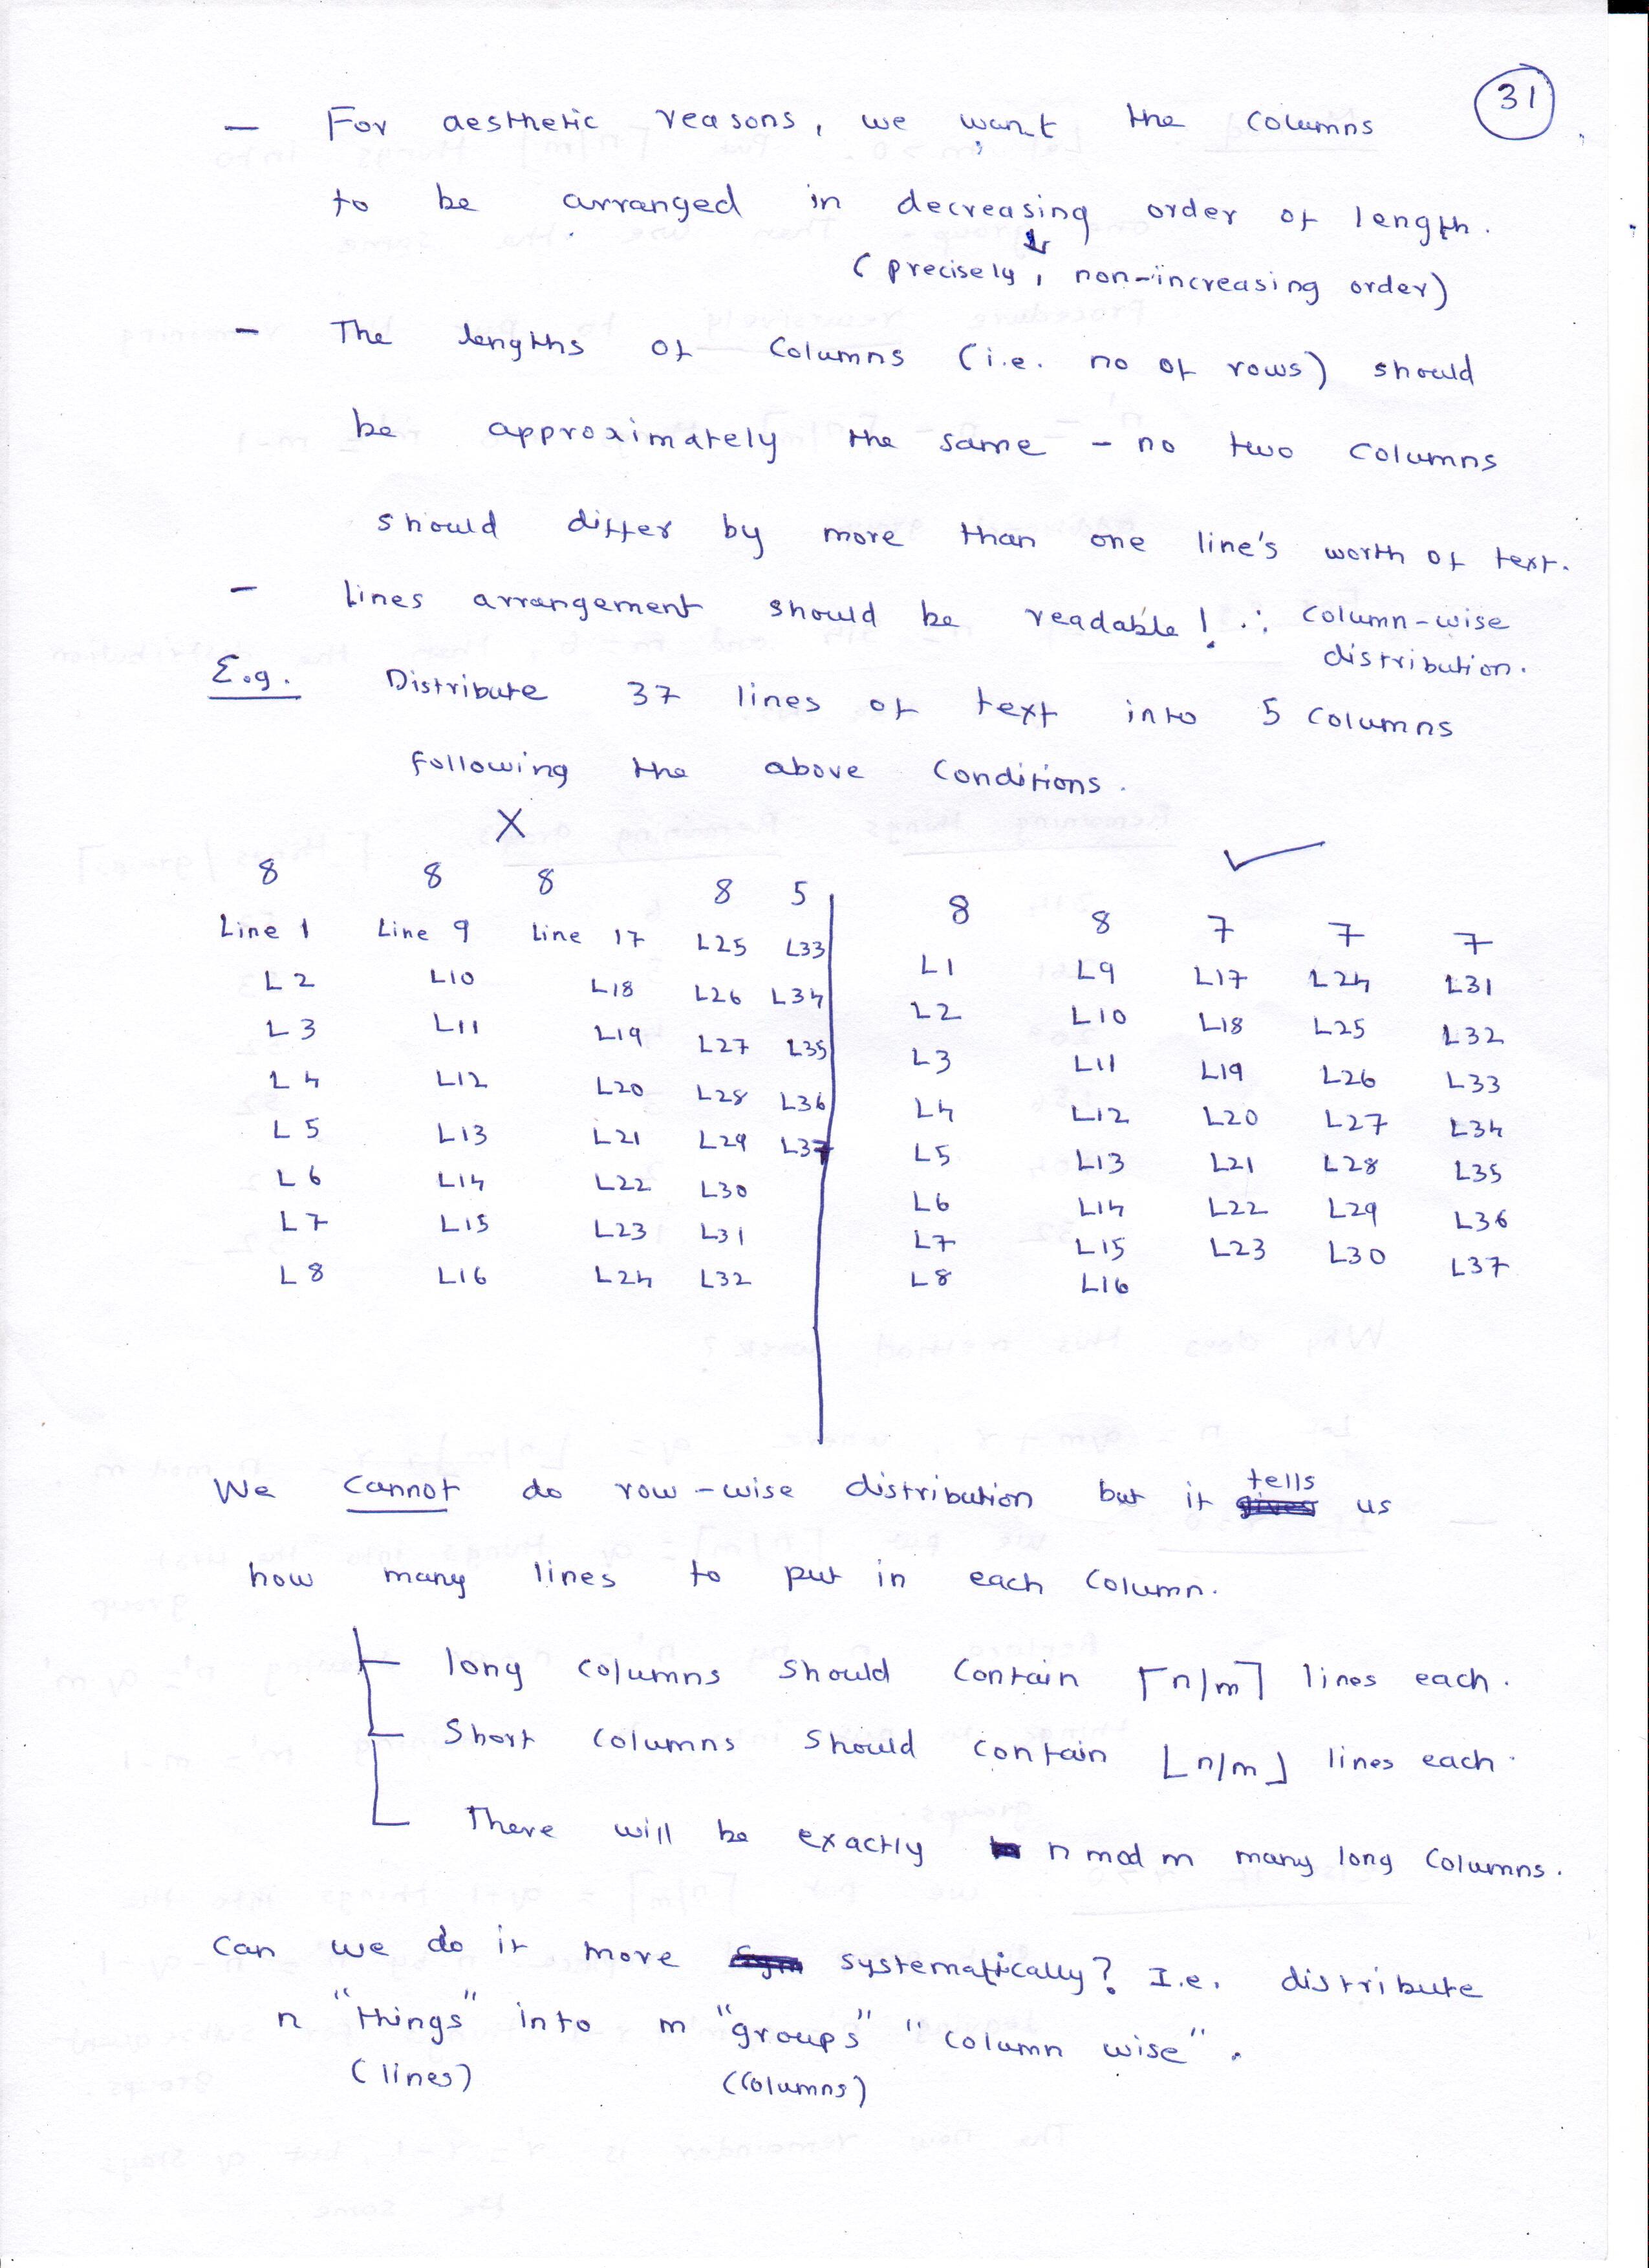 31
— For aesthetic reasons, we want the columns
to be arranged in decreasing order of length.
(precisely, non-increasing order)
— The lengths of columns (i.e. no of rows) should
be approximately the same - no two columns
should differ by more than one line's worth of text.
— lines arrangement should be readable! ∴ column-wise
distribution.
E.g. Distribute 37 lines of text into 5 columns
following the above conditions.
X ✓
8 8 8 8 5 8 8 7 7 7
Line 1 Line 9 Line 17 L25 L33 L1 L9 L17 L24 L31
L2 L10 L18 L26 L34 L2 L10 L18 L25 L32
L3 L11 L19 L27 L35 L3 L11 L19 L26 L33
L4 L12 L20 L28 L36 L4 L12 L20 L27 L34
L5 L13 L21 L29 L37 L5 L13 L21 L28 L35
L6 L14 L22 L30 L6 L14 L22 L29 L36
L7 L15 L23 L31 L7 L15 L23 L30 L37
L8 L16 L24 L32 L8 L16
We cannot do row-wise distribution but it tells us
how many lines to put in each column.
long columns should contain ⌈n/m⌉ lines each.
Short columns should contain ⌊n/m⌋ lines each.
There will be exactly n mod m many long columns.
Can we do it more systematically? I.e. distribute
n "things" into m "groups" "column wise".
(lines) (columns)